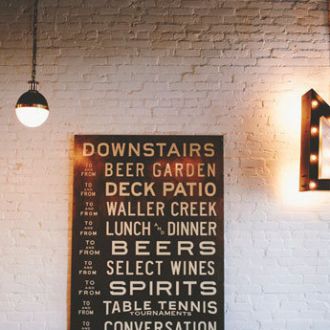 DOWNSTAIRS
TO AND FROM BEER GARDEN
TO AND FROM DECK PATIO
TO AND FROM WALLER CREEK
TO AND FROM LUNCH AND DINNER
TO AND FROM BEERS
TO AND FROM SELECT WINES
TO AND FROM SPIRITS
TO AND FROM TABLE TENNIS
TOURNAMENTS
TO AND FROM CONVERSATION